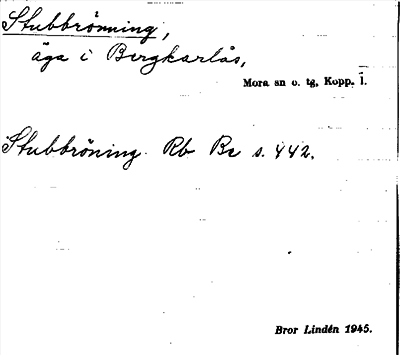 Stubbrönning,
äga i Bergkarlås,
Mora sn o. tg, Kopp. l.
Stubbröning. Rb Bc s. 442.
Bror Lindén 1945.